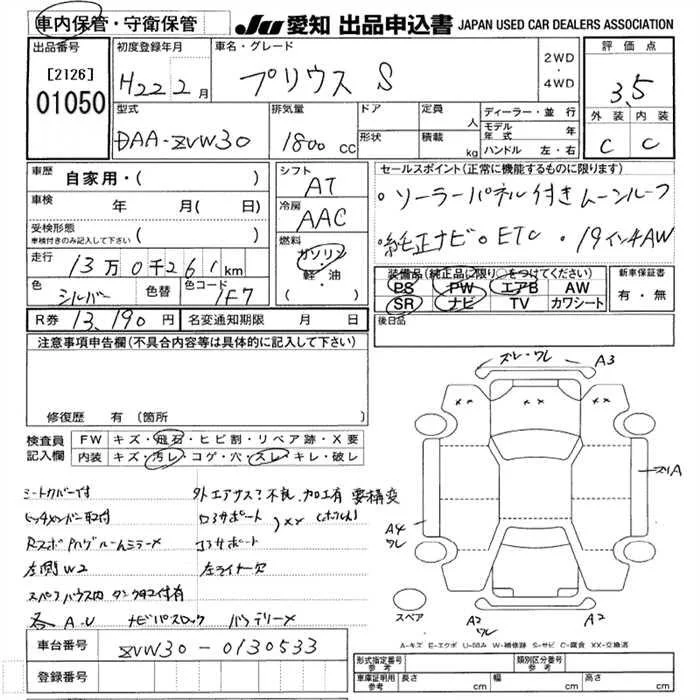 車内保管・守衛保管 JU 愛知 出品申込書 JAPAN USED CAR DEALERS ASSOCIATION
出品番号 初度登録年月 車名・グレード 2WD ・ 4WD 評価点
[2126]
01050
H22 2月 プリウス S 3.5
型式 排気量 ドア 定員 人 ディーラー・並行
モデル年式 年
形状 積載 kg ハンドル 左・右
外装 内装
DAA-ZVW30 1800 cc C C
車歴 自家用・( )
シフト AT
セールスポイント(正常に機能するものに限ります)
車検 年 月(日)
冷房 AAC
・ソーラーパネル付き ムーンルーフ
受検形態 車検付きのみ記入して下さい ( )
燃料 ガソリン・軽・油 ( )
・純正ナビ・ETC ・19インチAW
走行 13万0千261km
装備品(純正品に限り○をつけてください) 新車保証書
色 シルバー 色替 色コード 1F7
PS PW エアB AW
SR ナビ TV カワシート
有・無
R券 13,190円 名変通知期限 月 日
後日品
注意事項申告欄(不具合内容等は具体的に記入して下さい)
修復歴 有(箇所
検査員記入欄 FW キズ・飛石・ヒビ割・リペア跡・X要
内装 キズ・汚レ・コゲ・穴・スレ・キレ・破レ
ズレ・ワレ A3
XX XX XX
A4
ワレ
スペア
A2
ワレ
A2
シートカバー付
外エアサス?不良、加工有 要構変
コアサポート
左ライナー欠
左側W2
各A・U ナビパスロック バッテリーメ
A-キズ E-エクボ U-凹み W-補修跡 S-サビ C-腐食 XX-交換済
車台番号 ZVW30-0130533
登録番号
形式指定番号 参考 類別区分番号 参考
車庫証明用 参考 長さ cm 幅 cm 高さ cm